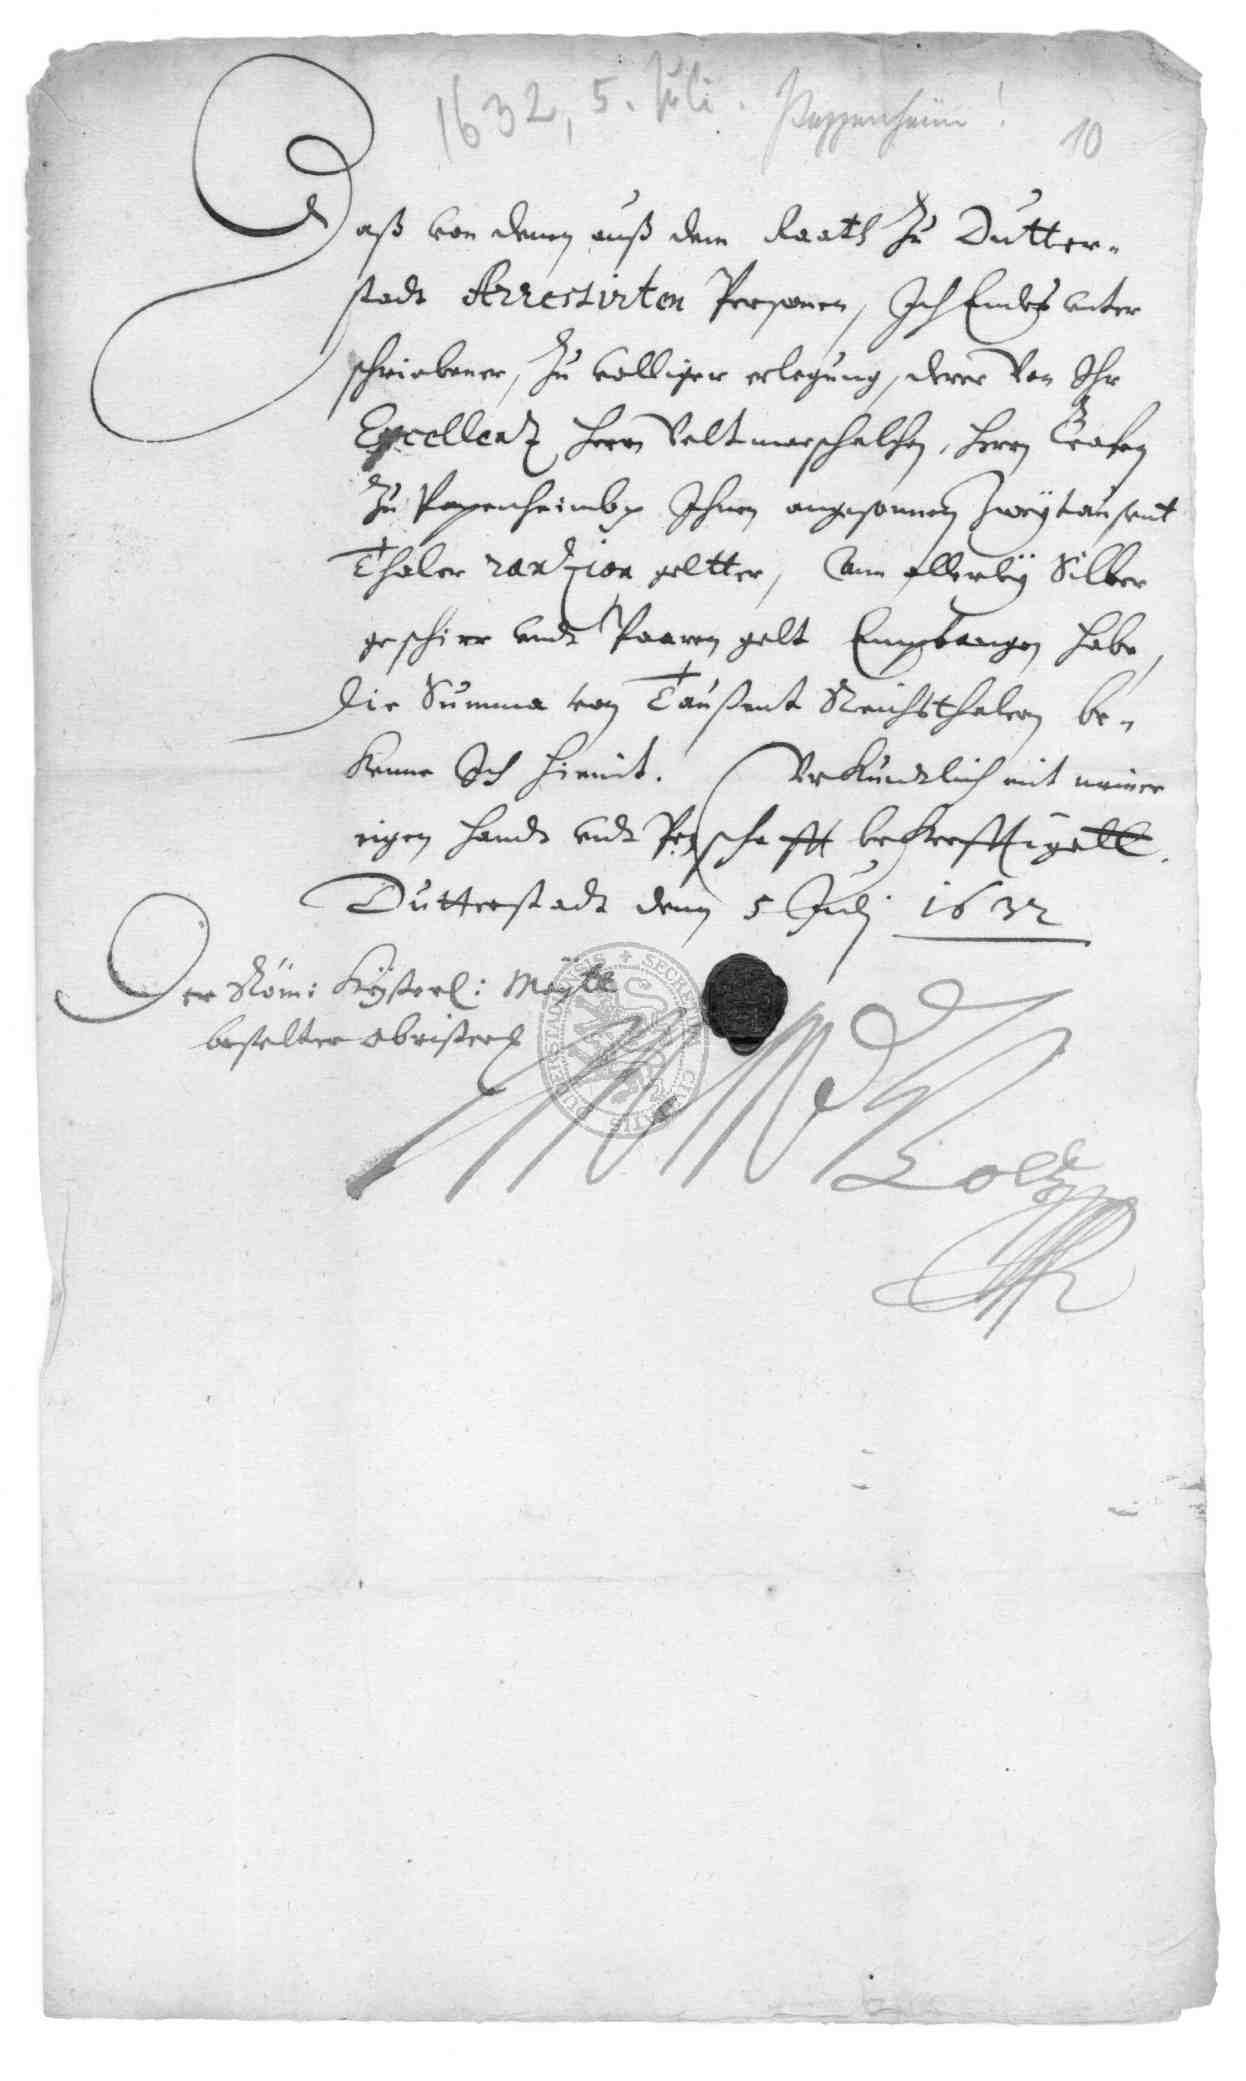 1632, 5. Juli. Pappenheim! 10
Daß von denen auß dem Raath zu Dutter-
stadt Arrestirten Personen, Ich Endts unter
schriebener, zu volliger erlegung, derer Von Ihr
Excellentz Herrn Veltmarschalchen, Herrn Grafen
zu Papenheimb Ihnen angesonnen Zweytausent
Thaler rantzion geltter, Ann allerley Silber
geschirr undt Paaren gelt Empfangen habe,
die Summa von Taußent Reichsthalern be-
kenne Ich hiemit. Urkundtlich mit meiner
eigen handt undt Petschafft bekrefftigett.
Dutterstadt denn 5 Julj 1632
Der Röm: Kayserl: Maytt
bestelter Obrister
SECRETUM CIVITATIS DUDERSTADENSIS